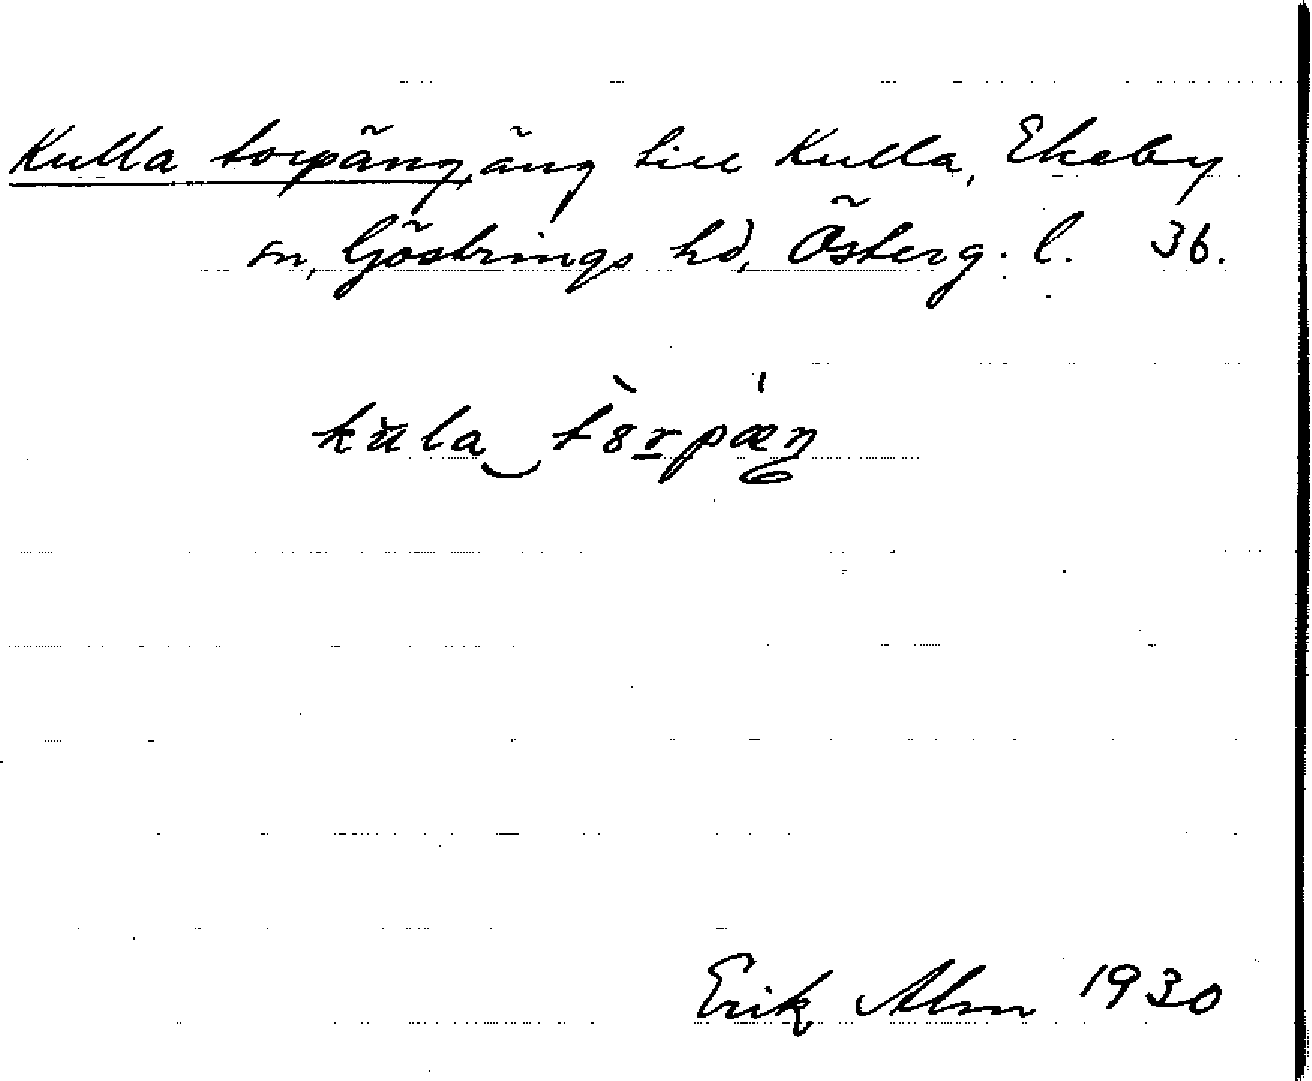 Kulla torpäng, äng till Kulla, Ekeby
sn, Göstrings hd, Österg. l. 36.
kùla tȣ̀rpæ̀ŋ
Erik Alm 1930